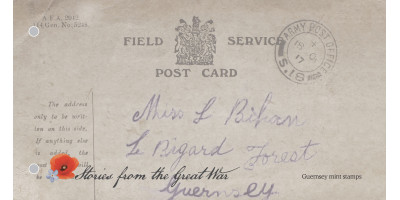 A.F.A. 2042.
FIELD SERVICE
POST CARD
ARMY POST OFFICE
The address
only to be writ-
ten on this side.
If anything else
is added the
will be
Miss L Bihan
Le Bigard Forest
Guernsey
Stories from the Great War
Guernsey mint stamps